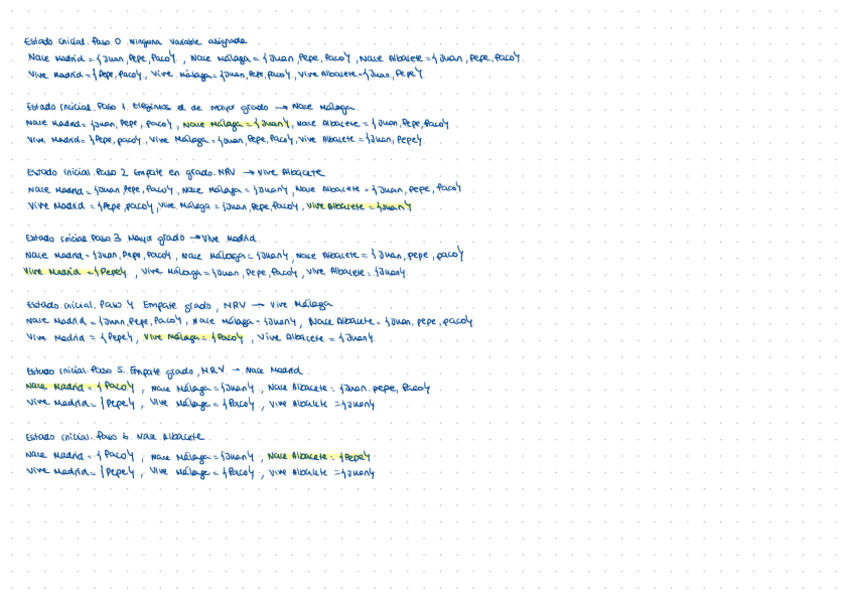 Estado inicial. Paso 0. Ninguna variable asignada
Nace Madrid = {Juan, Pepe, Paco}, Nace Málaga = {Juan, Pepe, Paco}, Nace Albacete = {Juan, Pepe, Paco}
Vive Madrid = {Pepe, Paco}, Vive Málaga = {Juan, Pepe, Paco}, Vive Albacete = {Juan, Pepe}
Estado inicial. Paso 1. Elegimos el de mayor grado → Nace Málaga
Nace Madrid = {Juan, Pepe, Paco}, Nace Málaga = {Juan}, Nace Albacete = {Juan, Pepe, Paco}
Vive Madrid = {Pepe, Paco}, Vive Málaga = {Juan, Pepe, Paco}, Vive Albacete = {Juan, Pepe}
Estado inicial. Paso 2. Empate en grado. NRV → Vive Albacete
Nace Madrid = {Juan, Pepe, Paco}, Nace Málaga = {Juan}, Nace Albacete = {Juan, Pepe, Paco}
Vive Madrid = {Pepe, Paco}, Vive Málaga = {Juan, Pepe, Paco}, Vive Albacete = {Juan}
Estado inicial. Paso 3. Mayor grado → Vive Madrid
Nace Madrid = {Juan, Pepe, Paco}, Nace Málaga = {Juan}, Nace Albacete = {Juan, Pepe, Paco}
Vive Madrid = {Pepe}, Vive Málaga = {Juan, Pepe, Paco}, Vive Albacete = {Juan}
Estado inicial. Paso 4. Empate grado, MRV → Vive Málaga
Nace Madrid = {Juan, Pepe, Paco}, Nace Málaga = {Juan}, Nace Albacete = {Juan, pepe, paco}
Vive Madrid = {Pepe}, Vive Málaga = {Paco}, Vive Albacete = {Juan}
Estado inicial. Paso 5. Empate grado, MRV → Nace Madrid
Nace Madrid = {Paco}, Nace Málaga = {Juan}, Nace Albacete = {Juan, pepe, Paco}
Vive Madrid = {Pepe}, Vive Málaga = {Paco}, Vive Albacete = {Juan}
Estado inicial. Paso 6. Nace Albacete
Nace Madrid = {Paco}, Nace Málaga = {Juan}, Nace Albacete = {Pepe}
Vive Madrid = {Pepe}, Vive Málaga = {Paco}, Vive Albacete = {Juan}